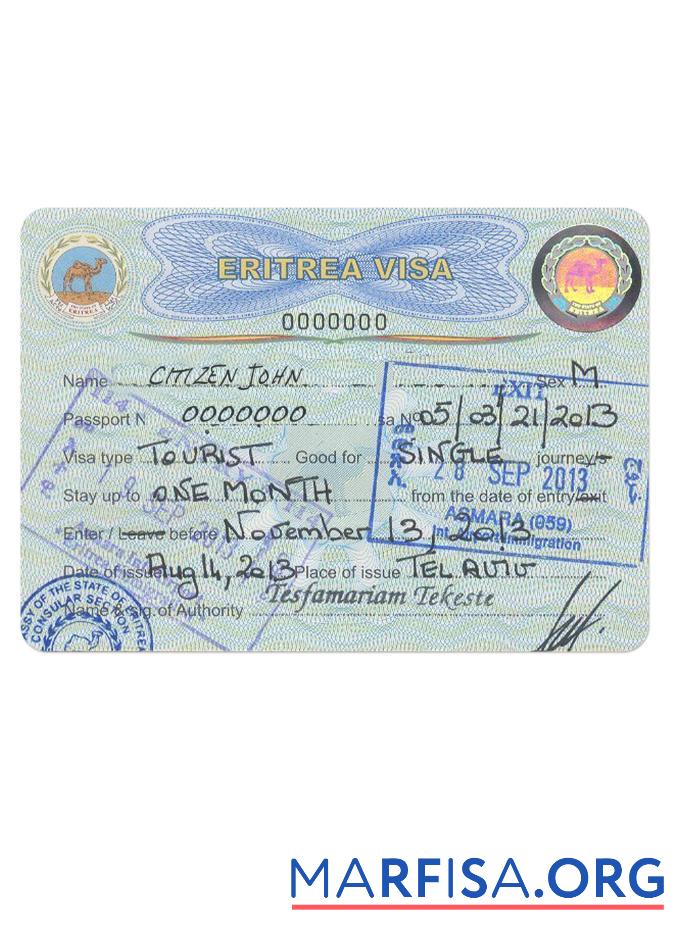 ERITREA VISA
0000000
Name CITIZEN JOHN Sex M
Passport N 0000000 sa Nº 05/03/21/2013
Visa type TOURIST Good for SINGLE journey/s
Stay up to ONE MONTH from the date of entry/exit
Enter / Leave before November 13, 2013
Date of issue Aug 14, 2013 Place of issue TEL AVIV
Name & sig. of Authority Tesfamariam Tekeste
EXIT
28 SEP 2013
ASMARA (059)
Immigration
SSY OF THE STATE OF ERITREA
CONSULAR SECTION
ERITREA
ERITREA
MARFISA.ORG